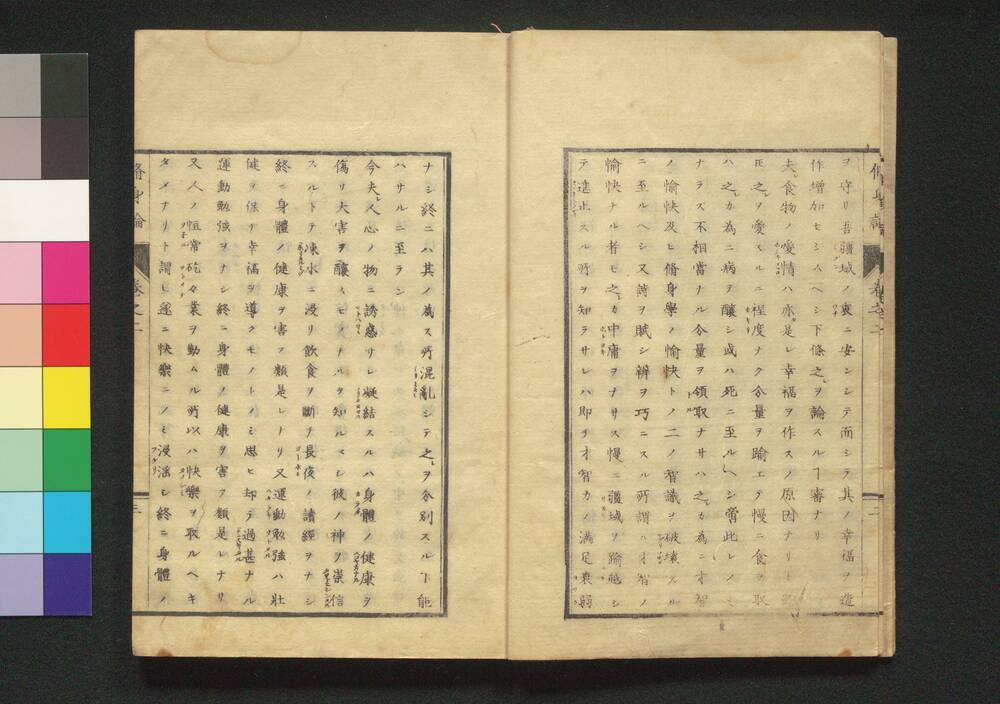 ヲ守リ吾疆域ノ裏ニ安ンシテ而シテ其ノ幸福ヲ造
作増加セシムヘシ下條之ヲ論スルヿ審ナリ
夫食物ノ愛情ハ亦是レ幸福ヲ作スノ原因ナリト
之ヲ愛スルニ程度ナク分量ヲ踰エテ慢ニ食ヲ取
ハ之カ為ニ病ヲ釀シ或ハ死ニ至ルヘシ啻此レノミ
ナラス不相當ナル分量ヲ領取ナサハ之カ為ニ才智
ノ愉快及ヒ脩身學ノ愉快トノ二ノ智識ヲ破壊スル
ニ至ルヘシ又詩ヲ賦シ辨ヲ巧ニスル所謂ハオ智ノ
愉快ナル者モ之カ中庸ヲナサス慢ニ疆域ヲ踰越シ
テ進止スル所ヲ知ラサレハ即チ才智力ノ満足衰弱
ナシ終ニハ其ノ属ス所混亂シテ之ヲ分別スルヿ能
ハサルニ至ラン
今夫人心ノ物ニ誘惑サレ凝結スルハ身體ノ健康ヲ
傷リ大害ヲ釀スモノナルヲ知ルヘシ彼ノ神ヲ崇信
スルトテ凍水ニ浸リ飲食ヲ斷チ長夜ノ讀經ヲナシ
終ニ身體ノ健康ヲ害ヲ類是レナリ又運動勉強ハ壮
健ヲ保チ幸福ヲ導クモノトノミ思ヒ却テ過甚ナル
運動勉強ヲナシ終ニ身體ノ健康ヲ害ヲ類是レナリ
又人ノ恒常矻々業ヲ勤ムル所以ハ快樂ヲ取ルヘキ
タメナリト謂ヒ遂ニ快樂ニノミ浸淫シ終ニ身體ノ
脩身論
卷之二
三